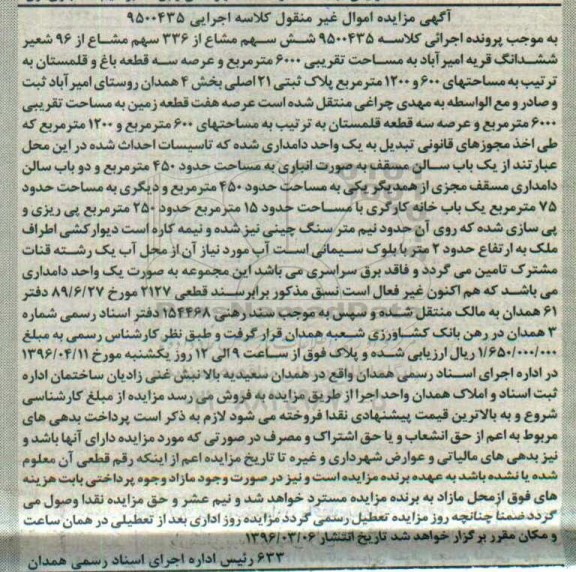 آگهی مزایده اموال غیر منقول کلاسه اجرایی ۹۵۰۰۴۳۵
به موجب پرونده اجرائی کلاسه ۹۵۰۰۴۳۵ شش سهم مشاع از ۳۳۶ سهم مشاع از ۹۶ شعیر
ششدانگ قریه امیر آباد به مساحت تقریبی ۶۰۰۰ مترمربع و عرصه سه قطعه باغ و قلمستان به
ترتیب به مساحتهای ۶۰۰ و ۱۲۰۰ مترمربع پلاک ثبتی ۲۱ اصلی بخش ۴ همدان روستای امیرآباد ثبت
و صادر و مع الواسطه به مهدی چراغی منتقل شده است عرصه هفت قطعه زمین به مساحت تقریبی
۶۰۰۰ مترمربع و عرصه سه قطعه قلمستان به ترتیب به مساحتهای ۶۰۰ مترمربع و ۱۲۰۰ مترمربع که
طی اخذ مجوزهای قانونی تبدیل به یک واحد دامداری شده که تاسیسات احداث شده در این محل
عبارتند از یک باب سالن مسقف به صورت انباری به مساحت حدود ۴۵۰ مترمربع و دو باب سالن
دامداری مسقف مجزی از همدیگر یکی به مساحت حدود ۴۵۰ مترمربع و دیگری به مساحت حدود
۷۵ مترمربع یک باب خانه کارگری با مساحت حدود ۱۵ مترمربع حدود ۲۵۰ مترمربع پی ریزی و
پی سازی شده که روی آن حدود نیم متر سنگ چینی نیز شده و نیمه کاره است دیوارکشی اطراف
ملک به ارتفاع حدود ۲ متر با بلوک سیمانی است آب مورد نیاز آن از محل آب یک رشته قنات
مشترک تامین می گردد و فاقد برق سراسری می باشد این مجموعه به صورت یک واحد دامداری
می باشد که هم اکنون غیر فعال است نسق مذکور برابر سند قطعی ۲۱۲۷ مورخ ۸۹/۶/۲۷ دفتر
۶۱ همدان به مالک منتقل شده و سپس به موجب سند رهنی ۱۵۴۴۶۸ دفتر اسناد رسمی شماره
۳ همدان در رهن بانک کشاورزی شعبه همدان قرار گرفت و طبق نظر کارشناس رسمی به مبلغ
۱/۶۵۰/۰۰۰/۰۰۰ ریال ارزیابی شده و پلاک فوق از ساعت ۹ الی ۱۲ روز یکشنبه مورخ ۱۳۹۶/۰۴/۱۱
در اداره اجرای اسناد رسمی همدان واقع در همدان سعیدیه بالا نبش غنی زادیان ساختمان اداره
ثبت اسناد و املاک همدان واحد اجرا از طریق مزایده به فروش می رسد مزایده از مبلغ کارشناسی
شروع و به بالاترین قیمت پیشنهادی نقدا فروخته می شود لازم به ذکر است پرداخت بدهی های
مربوط به اعم از حق انشعاب و یا حق اشتراک و مصرف در صورتی که مورد مزایده دارای آنها باشد و
نیز بدهی های مالیاتی و عوارض شهرداری و غیره تا تاریخ مزایده اعم از اینکه رقم قطعی آن معلوم
شده یا نشده باشد به عهده برنده مزایده است و نیز در صورت وجود مازاد وجوه پرداختی بابت هزینه
های فوق از محل مازاد به برنده مزایده مسترد خواهد شد و نیم عشر و حق مزایده نقدا وصول می
گردد ضمنا چنانچه روز مزایده تعطیل رسمی گردد مزایده روز اداری بعد از تعطیلی در همان ساعت
و مکان مقرر برگزار خواهد شد تاریخ انتشار ۱۳۹۶/۰۳/۰۶
۶۳۳ رئیس اداره اجرای اسناد رسمی همدان